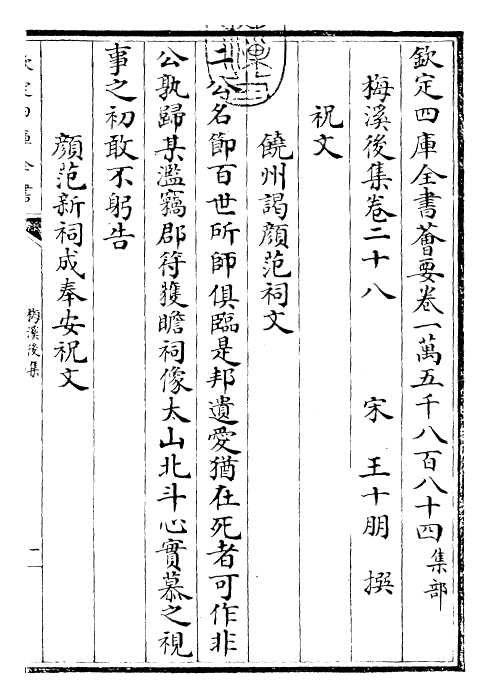 欽定四庫全書薈要卷一萬五千八百八十四 集部
梅溪後集卷二十八 宋 王十朋 撰
祝文
饒州謁顔范祠文
二公名節百世所師俱臨是邦遺愛猶在死者可作非
公孰歸某濫竊郡符獲瞻祠像太山北斗心實慕之視
事之初敢不躬告
顔范新祠成奉安祝文
梅溪後集